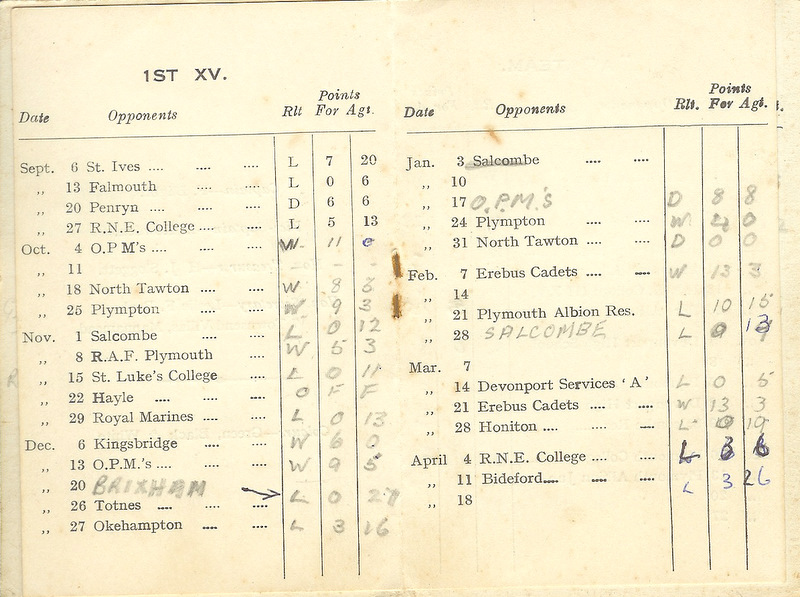 1ST XV.
Points
Date Opponents Rlt For Agt.
Sept. 6 St. Ives .... .... .... L 7 20
„ 13 Falmouth .... .... L 0 6
„ 20 Penryn .... .... .... D 6 6
„ 27 R.N.E. College .... .... L 5 13
Oct. 4 O.P M's .... .... .... W 11 0
„ 11
„ 18 North Tawton .... .... W 8
„ 25 Plympton .... .... W 9 3
Nov. 1 Salcombe .... .... L 0 12
„ 8 R.A.F. Plymouth .... W 5 3
„ 15 St. Luke's College .... L 0 11
„ 22 Hayle .... .... .... O F F
„ 29 Royal Marines .... .... L 0 13
Dec. 6 Kingsbridge .... .... W 6 0
„ 13 O.P.M.'s .... .... .... W 9 5
„ 20 BRIXHAM
„ 26 Totnes .... .... .... L 0 27
„ 27 Okehampton .... .... L 3 16
Points
Date Opponents Rlt. For Agt.
Jan. 3 Salcombe .... ....
„ 10
„ 17 O.P.M.'S D 8 8
„ 24 Plympton .... .... W 0
„ 31 North Tawton .... .... D 0 0
Feb. 7 Erebus Cadets .... .... W 13 3
„ 14
„ 21 Plymouth Albion Res. L 10 15
„ 28 SALCOMBE L 13
Mar. 7
„ 14 Devonport Services 'A' L 0 5
„ 21 Erebus Cadets .... .... W 13 3
„ 28 Honiton .... .... .... L 0 19
April 4 R.N.E. College .... .... L 3 6
„ 11 Bideford.... .... .... L 3 26
„ 18